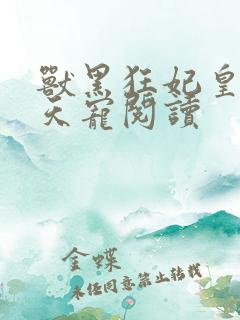 獸黑狂妃皇
天寵閱讀
金蝶
未经同意禁止转载